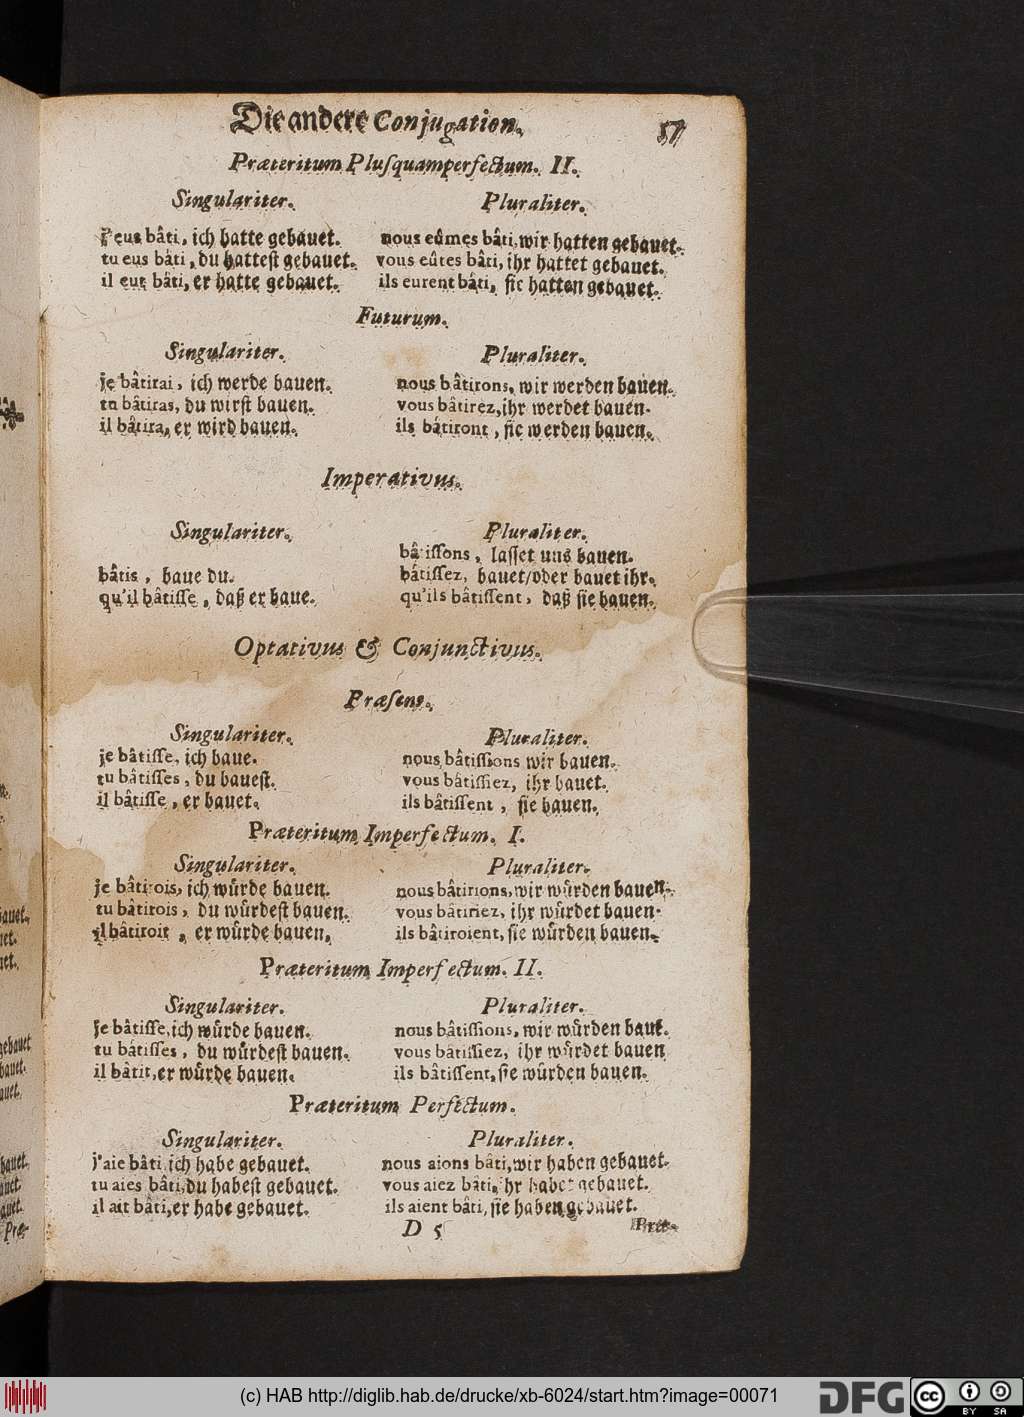 Die andere Conjugation. 57
Præteritum Pluſquamperfectum. II.
Singulariter. Pluraliter.
J'eus bâti, ich hatte gebauet. nous eûmes bâti, wir hatten gebauet.
tu eus bâti, du hatteſt gebauet. vous eûtes bâti, ihr hattet gebauet.
il eut bâti, er hatte gebauet. ils eurent bâti, ſie hatten gebauet.
Futurum.
Singulariter. Pluraliter.
je bâtirai, ich werde bauen. nous bâtirons, wir werden bauen.
tu bâtiras, du wirſt bauen. vous bâtirez, ihr werdet bauen.
il bâtira, er wird bauen. ils bâtiront, ſie werden bauen.
Imperativus.
Singulariter. Pluraliter.
bâtiſſons, laſſet uns bauen.
bâtis, baue du. bâtiſſez, bauet/oder bauet ihr.
qu'il bâtiſſe, daß er baue. qu'ils bâtiſſent, daß ſie bauen.
Optativus & Conjunctivus.
Præſens.
Singulariter. Pluraliter.
je bâtiſſe, ich baue. nous bâtiſſions wir bauen.
tu bâtiſſes, du baueſt. vous bâtiſſiez, ihr bauet.
il bâtiſſe, er bauet. ils bâtiſſent, ſie bauen.
Præteritum Imperfectum. I.
Singulariter. Pluraliter.
je bâtirois, ich würde bauen. nous bâtirions, wir würden bauen.
tu bâtirois, du würdeſt bauen. vous bâtiriez, ihr würdet bauen.
il bâtiroit, er würde bauen. ils bâtiroient, ſie würden bauen.
Præteritum Imperfectum. II.
Singulariter. Pluraliter.
Je bâtiſſe, ich würde bauen. nous bâtiſſions, wir würden baue.
tu bâtiſſes, du würdeſt bauen. vous bâtiſſiez, ihr würdet bauen
il bâtit, er würde bauen. ils bâtiſſent, ſie würden bauen.
Præteritum Perfectum.
Singulariter. Pluraliter.
j'aie bâti, ich habe gebauet. nous aions bâti, wir haben gebauet.
tu aies bâti, du habeſt gebauet. vous aiez bâti, ihr habet gebauet.
il ait bâti, er habe gebauet. ils aient bâti, ſie haben gebauet.
D 5 Præ-
(c) HAB http://diglib.hab.de/drucke/xb-6024/start.htm?image=00071
DFG cc BY SA